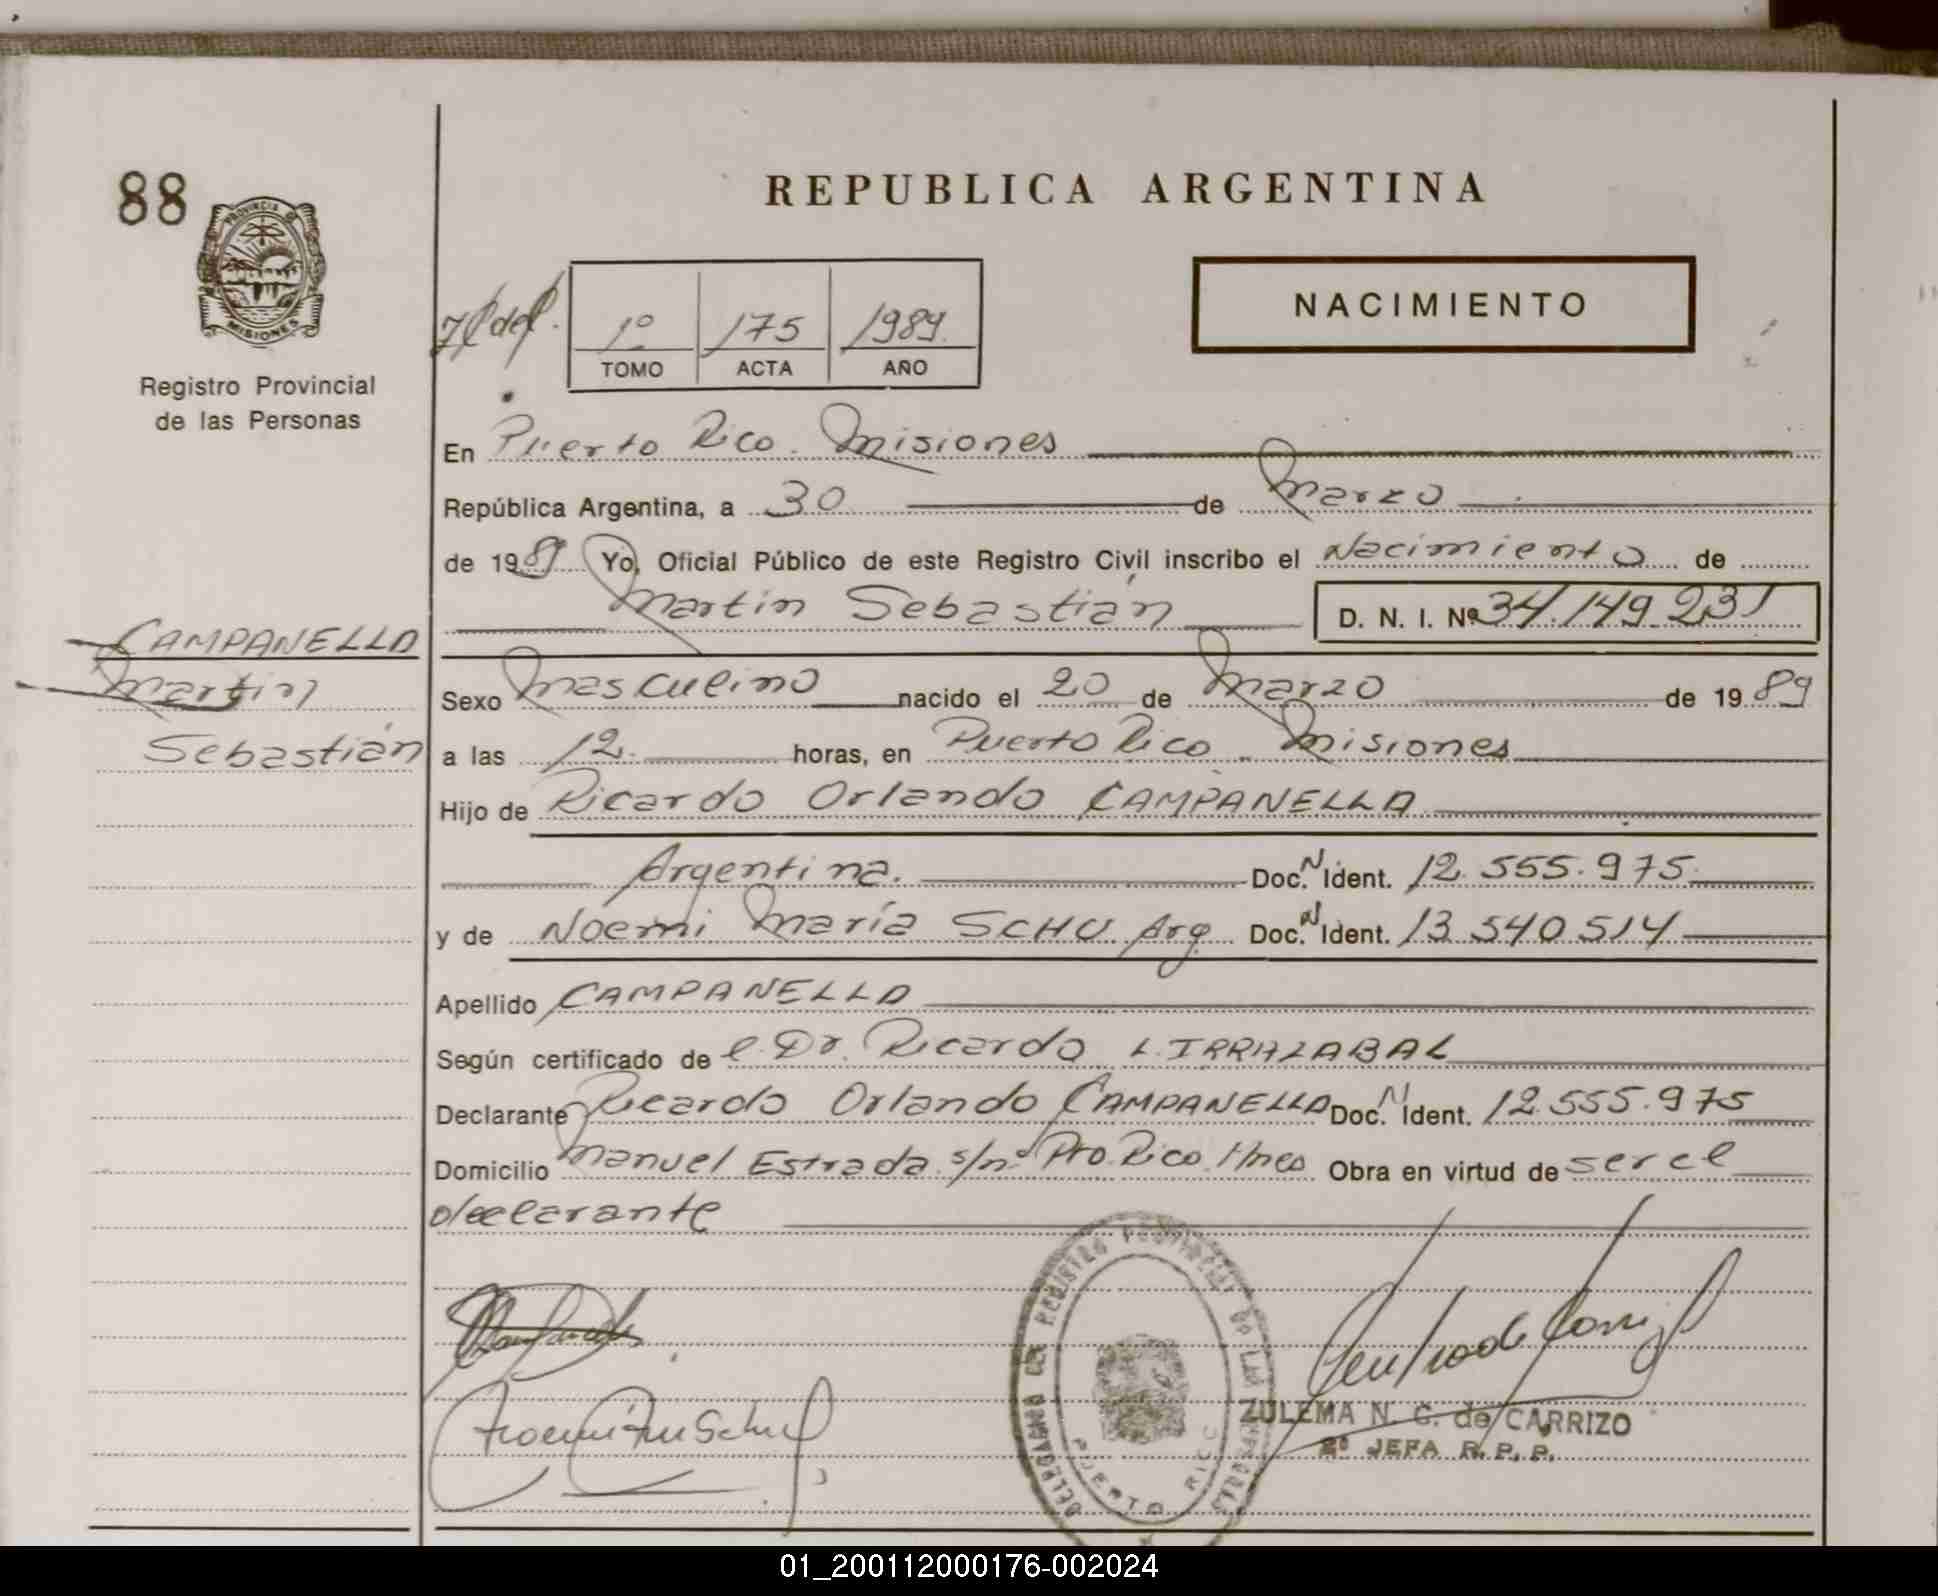 88
PROVINCIA DE
MISIONES
Registro Provincial
de las Personas
CAMPANELLA
Martin
Sebastián
REPUBLICA ARGENTINA
1º 175 1989.
TOMO ACTA AÑO
NACIMIENTO
En Puerto Rico. Misiones
República Argentina, a 30 de Marzo
de 1989 Yo, Oficial Público de este Registro Civil inscribo el Nacimiento de
Martin Sebastián D. N. I. Nº 34.149.231
Sexo Masculino nacido el 20 de Marzo de 1989
a las 12. horas, en Puerto Rico Misiones
Hijo de Ricardo Orlando CAMPANELLA
Argentina. Doc. N Ident. 12.555.975
y de Noemi María SCHU Arg. Doc. N Ident. 13.540.514
Apellido CAMPANELLA
Según certificado de l Dr. Ricardo L. IRRAZABAL
Declarante Ricardo Orlando CAMPANELLA Doc. N Ident. 12.555.975
Domicilio Manuel Estrada s/nº Pto. Rico. Mnes Obra en virtud de ser el
declarante
DELEGACION DEL REGISTRO PROVINCIAL DE LAS PERSONAS
PUERTO RICO
ZULEMA N. C. de CARRIZO
2º JEFA R. P. P.
01_200112000176-002024